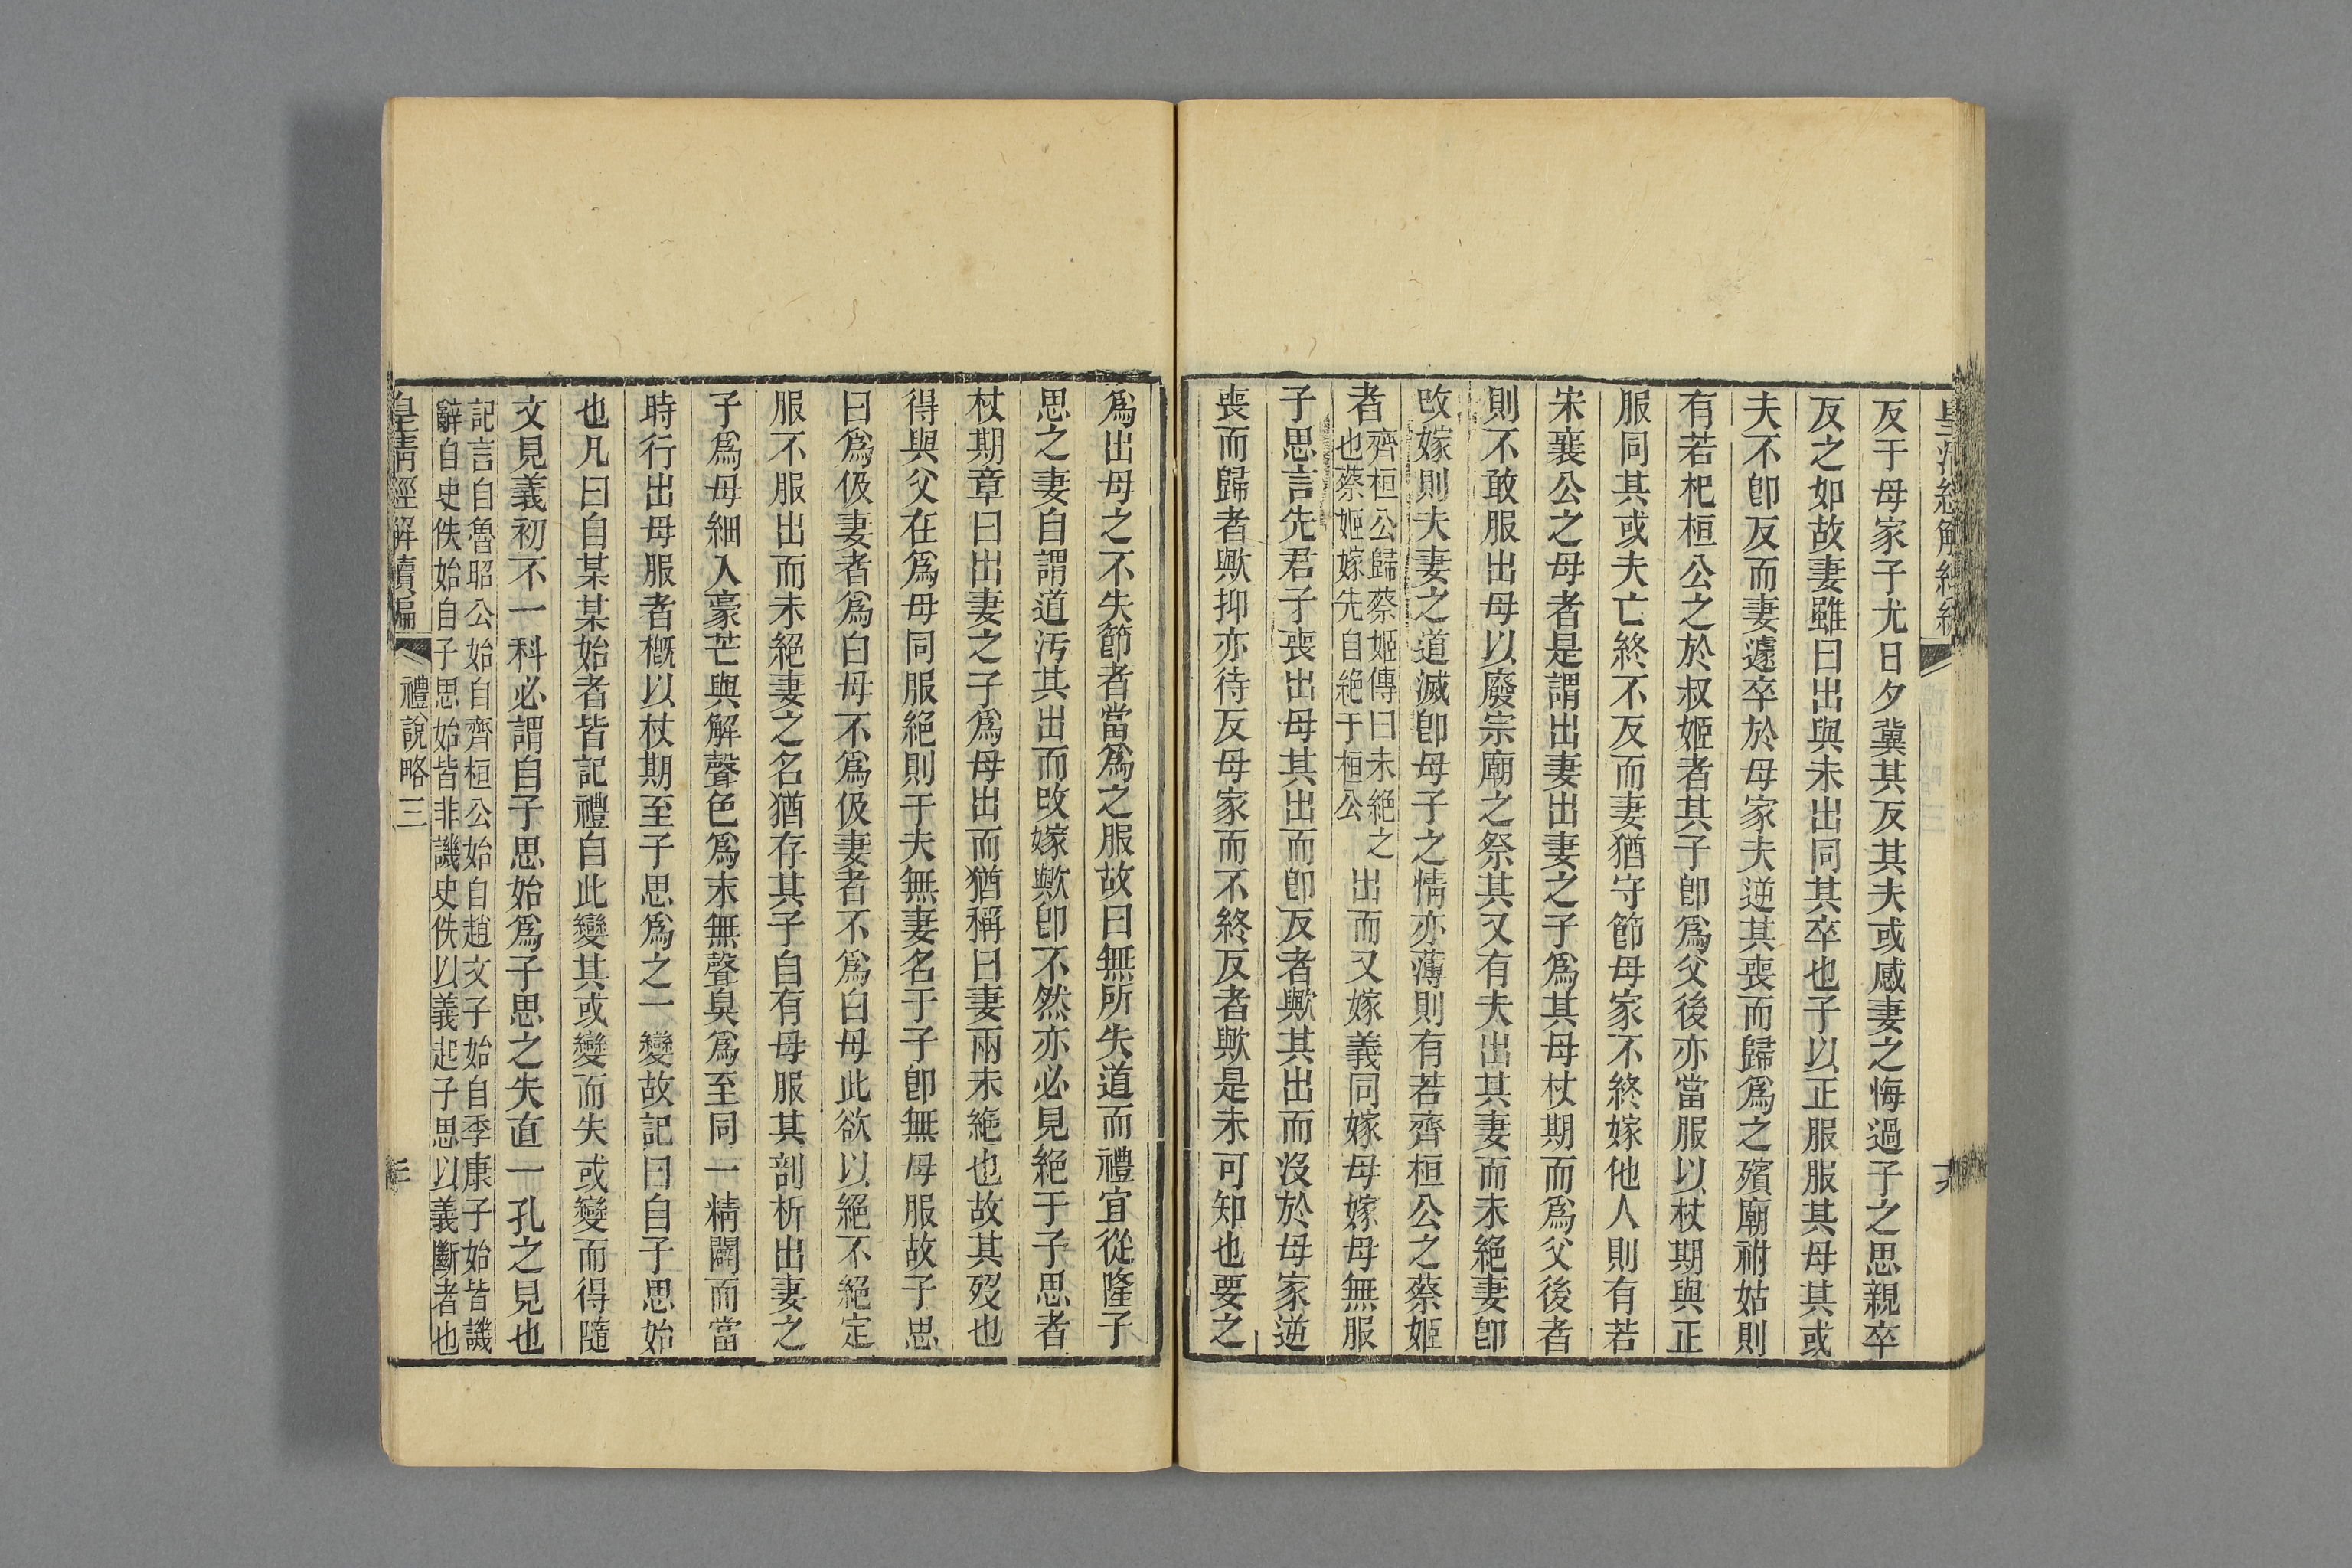 反于母家子尤日夕冀其反其夫或感妻之悔過子之思親卒
反之如故妻雖曰出與未出同其卒也子以正服服其母其或
夫不卽反而妻遽卒於母家夫逆其喪而歸爲之殯廟祔姑則
有若杞桓公之於叔姬者其子卽爲父後亦當服以杖期與正
服同其或夫亡終不反而妻猶守節母家不終嫁他人則有若
宋襄公之母者是謂出妻出妻之子爲其母杖期而爲父後者
則不敢服出母以廢宗廟之祭其又有夫出其妻而未絕妻卽
改嫁則夫妻之道滅卽母子之情亦薄則有若齊桓公之蔡姬
者齊桓公歸蔡姬傳曰未絕之也蔡姬嫁先自絕于桓公出而又嫁義同嫁母嫁母無服
子思言先君子喪出母其出而卽反者歟其出而沒於母家逆
喪而歸者歟抑亦待反母家而不終反者歟是未可知也要之
爲出母之不失節者當爲之服故曰無所失道而禮宜從隆子
思之妻自謂道汚其出而改嫁歟卽不然亦必見絕于子思者
杖期章曰出妻之子爲母出而猶稱曰妻兩未絕也故其歿也
得與父在爲母同服絕則于夫無妻名于子卽無母服故子思
曰爲伋妻者爲白母不爲伋妻者不爲白母此欲以絕不絕定
服不服出而未絕妻之名猶存其子自有母服其剖析出妻之
子爲母細入豪芒與解聲色爲末無聲臭爲至同一精闢而當
時行出母服者槪以杖期至子思爲之一變故記曰自子思始
也凡曰自某某始者皆記禮自此變其或變而失或變而得隨
文見義初不一科必謂自子思始爲子思之失直一孔之見也
記言自魯昭公始自齊桓公始自趙文子始自季康子始皆譏
辭自史佚始自子思始皆非譏史佚以義起子思以義斷者也
皇淸經解續編 禮說略三